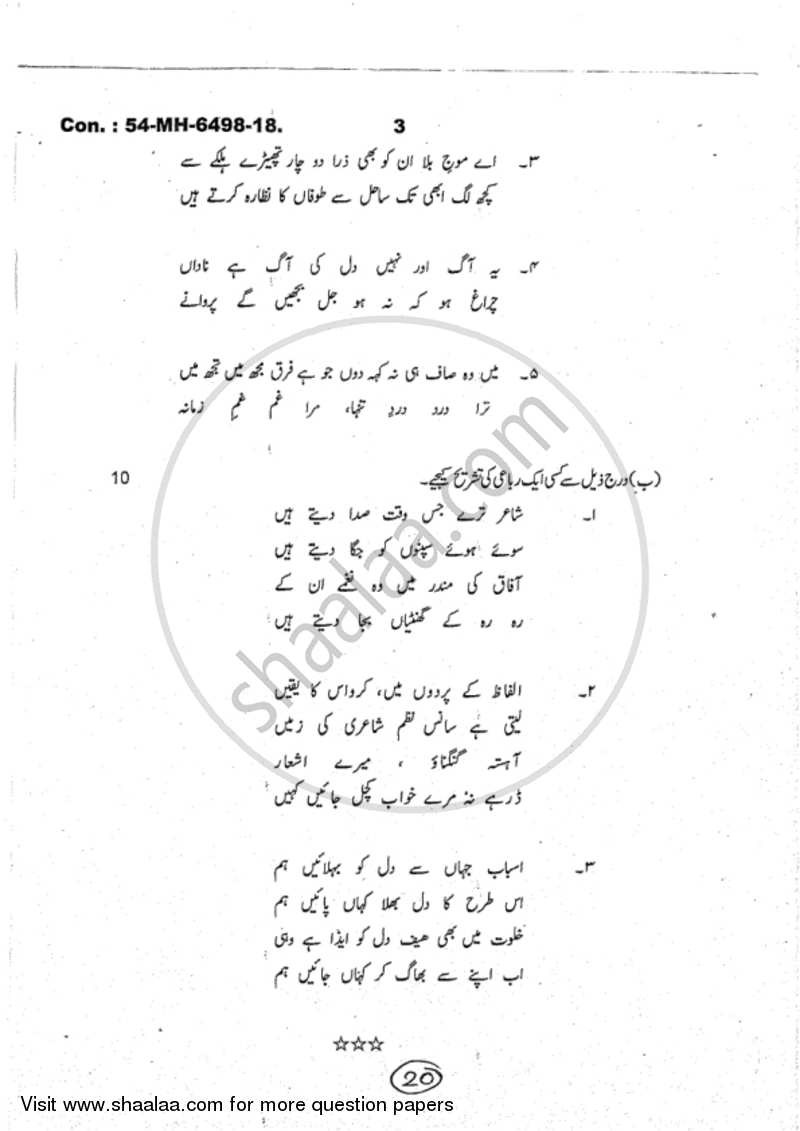 Con. : 54-MH-6498-18. 3
۳۔ اے موجِ بلا ان کو بھی ذرا دو چار تھپیڑے ہلکے سے
کچھ لگ ابھی تک ساحل سے طوفاں کا نظارہ کرتے ہیں
۴۔ یہ آگ اور نہیں دل کی آگ ہے ناداں
چراغ ہو کہ نہ ہو جل بجھیں گے پروانے
۵۔ میں وہ صاف ہی نہ کہہ دوں جو ہے فرق مجھ میں تجھ میں
ترا درد دردِ تنہا، مرا غم غمِ زمانہ
(ب) درج ذیل سے کسی ایک رباعی کی تشریح کیجیے۔ 10
۱۔ شاعر ترے جس وقت صدا دیتے ہیں
سوئے ہوئے سپنوں کو جگا دیتے ہیں
آفاق کی مندر میں وہ نغمے ان کے
رہ رہ کے گھنٹیاں بجا دیتے ہیں
۲۔ الفاظ کے پردوں میں، کرو اس کا یقیں
لیتی ہے سانس نظم شاعری کی زمیں
آہستہ گنگناؤ ، میرے اشعار
ڈر ہے نہ مرے خواب کچل جائیں کہیں
۳۔ اسباب جہاں سے دل کو بہلائیں ہم
اس طرح کا دل بھلا کہاں پائیں ہم
خلوت میں بھی حیف دل کو ایذا ہے وہی
اب اپنے سے بھاگ کر کہاں جائیں ہم
☆☆☆
20
shaalaa.com
Visit www.shaalaa.com for more question papers